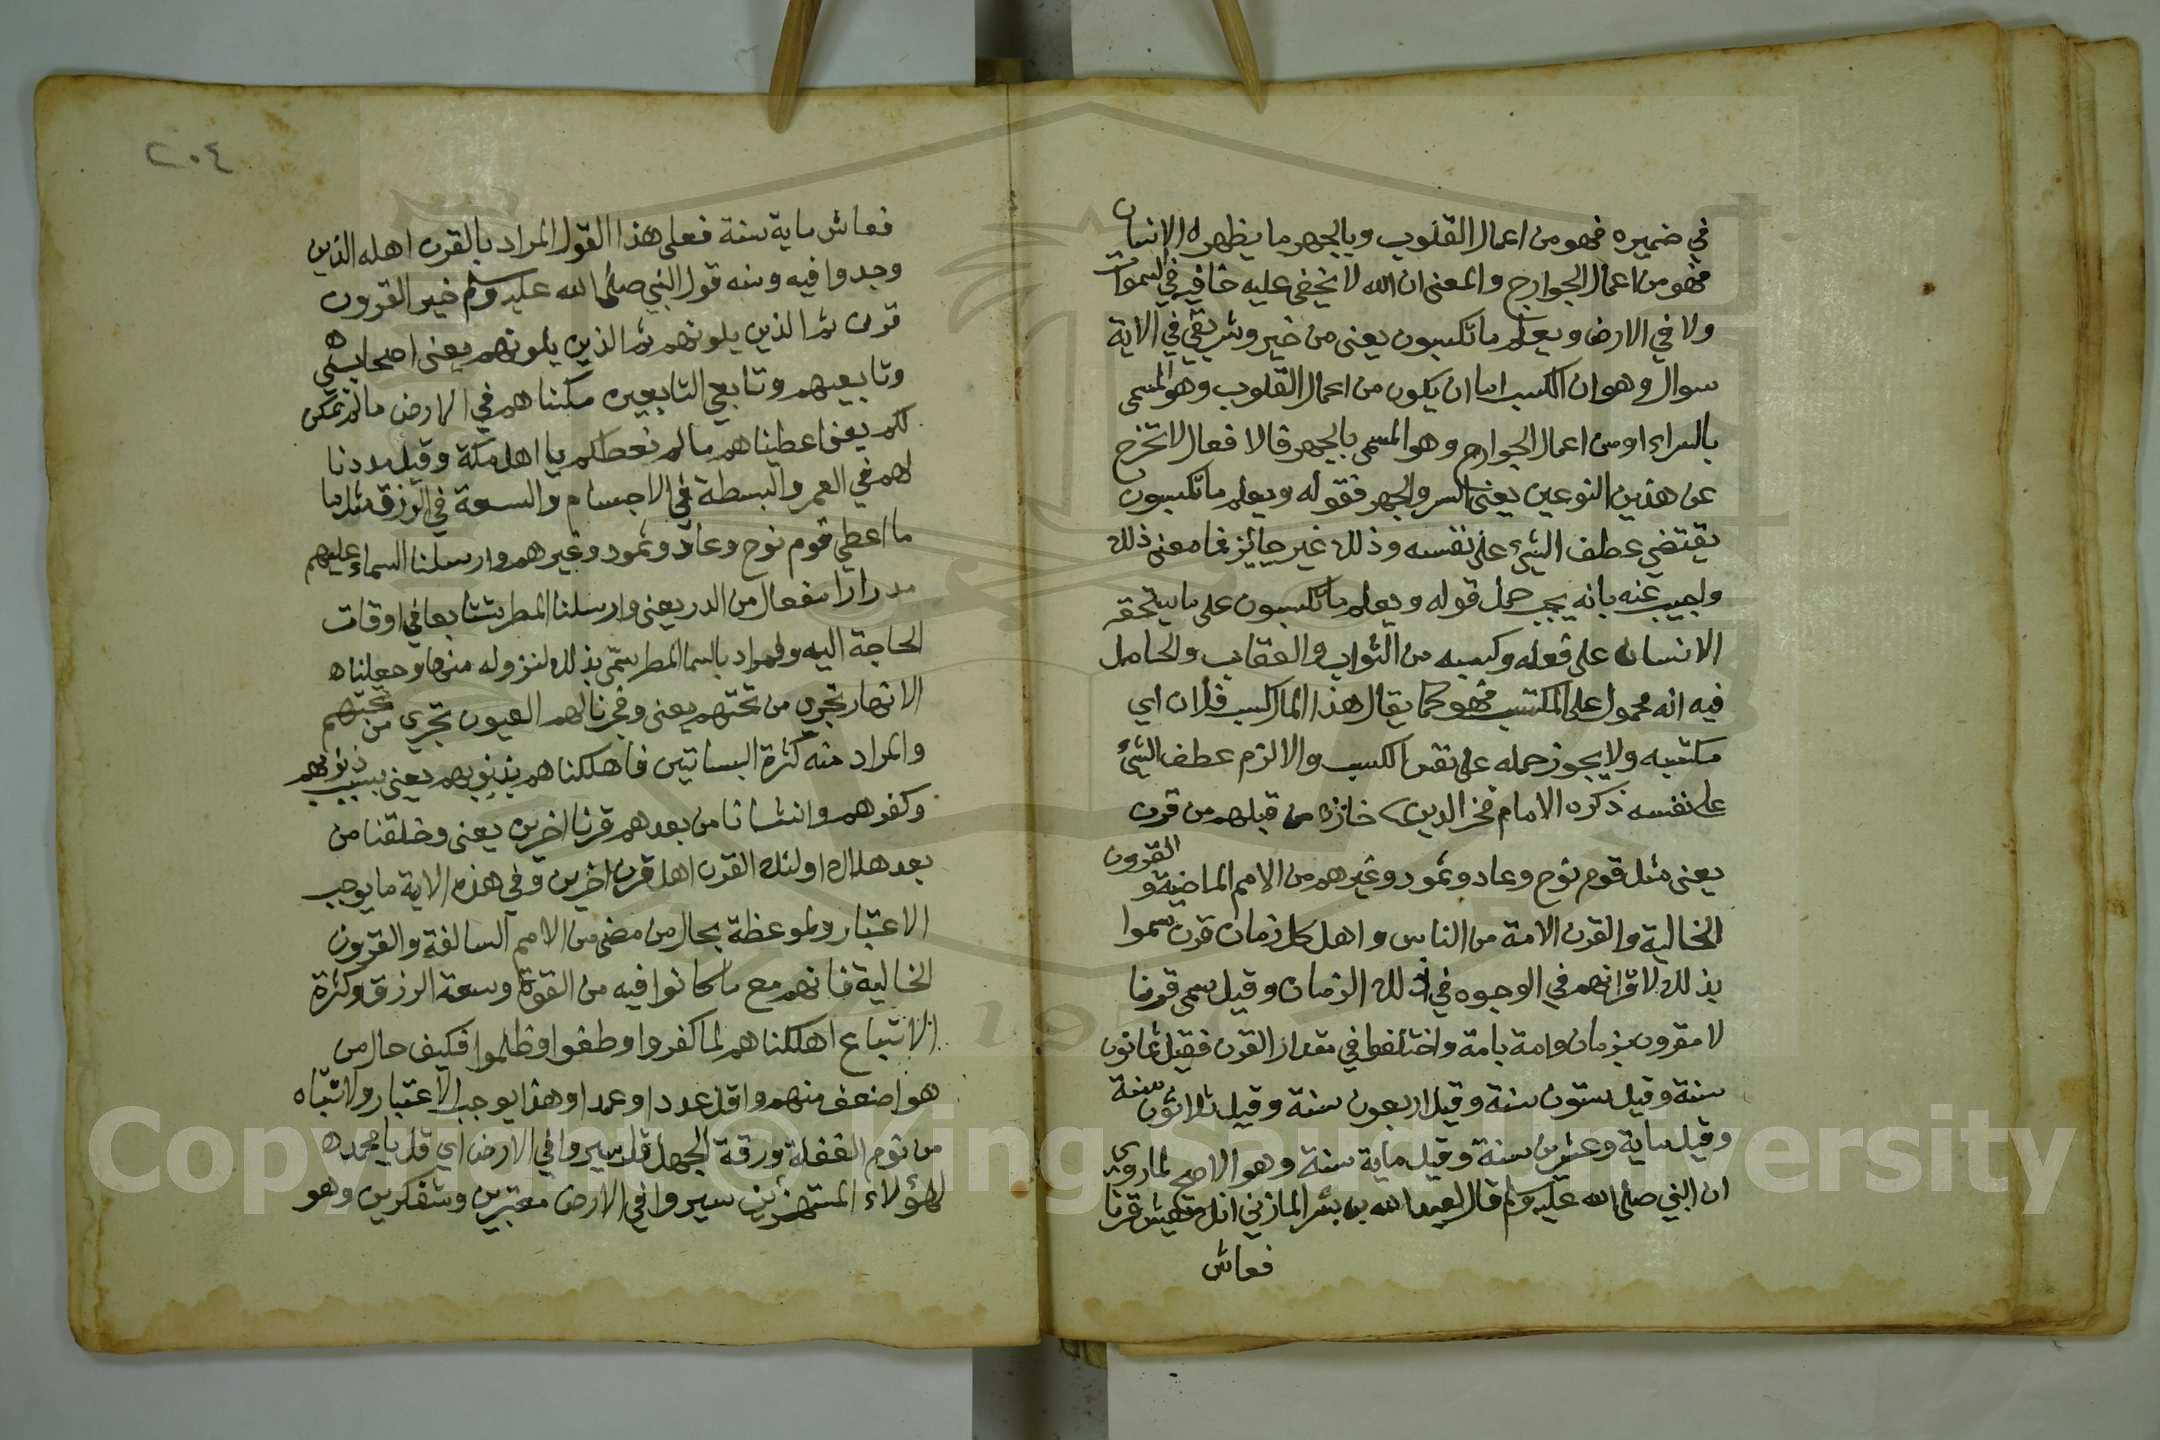 في ضميره فهو من اعمال القلوب وبالجهر ما يظهره الانسان
فهو من اعمال الجوارح والمعنى ان الله لا يخفى عليه خافيه في السموات
ولا في الارض ويعلم ما تكسبون يعنى من خير وشر بقي في الاية
سوال وهو ان الكسب اما ان يكون من اعمال القلوب وهو المسمى
بالسر او من اعمال الجوارح وهو المسمى بالجهر فالافعال لا تخرج
عن هذين النوعين يعنى السر والجهر فقوله ويعلم ما تكسبون
يقتضي عطف الشيء على نفسه وذلك غير جائز فما معنى ذلك
واجيب عنه بانه يجب حمل قوله ويعلم ما تكسبون على ما يستحقه
الانسان على فعله وكسبه من الثواب والعقاب والحاصل
فيه انه محمول على المكتسب فهو كما يقال هذا المال كسب فلان اي
مكتسبه ولا يجوز حمله على نفس الكسب والا لزم عطف الشيء
على نفسه ذكره الامام فخر الدين خازن من قبلهم من قرن
يعنى مثل قوم نوح وعاد وثمود وغيرهم من الامم الماضية والقرون
الخالية والقرن الامة من الناس واهل كل زمان قرن سموا
بذلك لاقترانهم في الوجوه في ذلك الزمان وقيل سمى قرنا
لا مقرون بزمان وامة بامة واختلفوا في مقدار القرن فقيل ثمانون
سنة وقيل ستون سنة وقيل اربعون سنة وقيل ثلاثون سنة
وقيل ماية وعشرين سنة وقيل ماية سنة وهو الاصح لما روي
ان النبي صلى الله عليه وسلم قال لعبد الله بن بشر المازني انك تعيش قرنا
فعاش
٢٠٤
فعاش ماية سنة فعلى هذا القول المراد بالقرن اهله الذين
وجدوا فيه ومنه قول النبي صلى الله عليه وسلم خير القرون
قرن ثم الذين يلونهم ثم الذين يلونهم يعنى اصحابه
وتابعيهم وتابعي التابعين مكناهم في الارض ما لم نمكن
لكم يعنى اعطيناهم ما لم نعطكم يا اهل مكة وقيل مددنا
لهم في العمر والبسطة في الاجسام والسعة في الرزق مثل ما
ما اعطي قوم نوح وعاد وثمود وغيرهم وارسلنا السماء عليهم
مدرارا مفعال من الدر يعنى وارسلنا المطر متتابعا في اوقات
الحاجة اليه والمراد بالسما المطر سمّى بذلك لنزوله منها وجعلنا
الانهار تجري من تحتهم يعنى وفجرنا لهم العيون تجري من تحتهم
والمراد منه كثرة البساتين فاهلكناهم بذنوبهم يعنى بسبب ذنوبهم
وكفرهم وانشانا من بعدهم قرنا اخرين يعنى وخلقنا من
بعد هلاك اولئك القرن اهل قرن اخرين وفي هذه الاية ما يوجب
الاعتبار والموعظة بحال من مضى من الامم السالفة والقرون
الخالية فانهم مع ما كانوا فيه من القوة وسعة الرزق وكثرة
الاتباع اهلكناهم لما كفروا وطغوا وظلموا فكيف حال من
هو اضعف منهم واقل عددا وعمدا وهذا يوجب الاعتبار والانتباه
من نوم الغفلة ورقة الجهل قل سيروا في الارض اي قل يا محمد
لهؤلاء المستهزئين سيروا في الارض معتبرين ومتفكرين وهو
Copyright © King Saud University